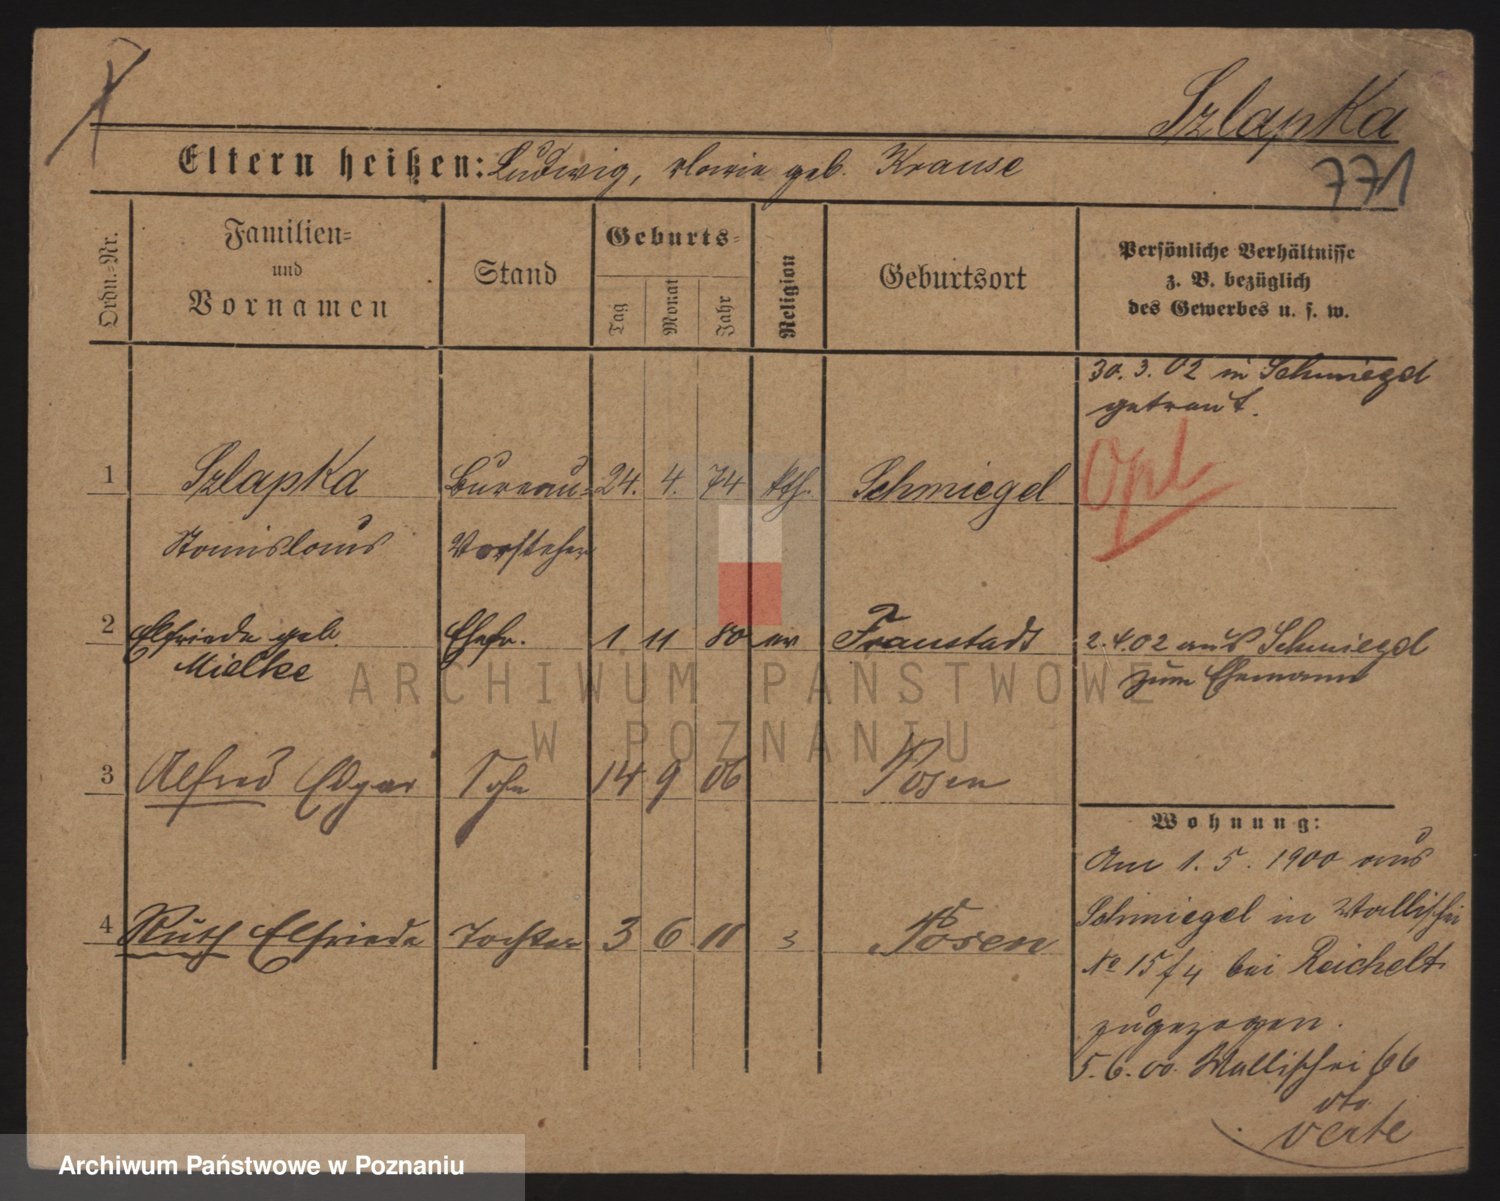 Szlapka
771
Eltern heißen: Ludwig, Marie geb. Krause
Ordn.-Nr.
Familien-
und
Vornamen
Stand
Geburts-
Tag
Monat
Jahr
Religion
Geburtsort
Persönliche Verhältnisse
z. B. bezüglich
des Gewerbes u. s. w.
30. 3. 02 in Schmiegel
getraut.
1 Szlapka Bureau- 24. 4. 74 kth. Schmiegel
Opl
Stanislaus Vorsteher
2 Elfriede geb. Ehefr. 1 11 80 ev Fraustadt
Mielke
2.4.02 aus Schmiegel
zum Ehemann
3 Alfred Edgar Sohn 14 9 06 Posen
4 Ruth Elfriede Tochter 3 6 11 Posen
Wohnung:
Am 1. 5. 1900 aus
Schmiegel in Wallischei
No 15/4 bei Reichelt
zugezogen.
5. 6. 00. Wallischei 66
verte
ARCHIWUM PAŃSTWOWE
W POZNANIU
Archiwum Państwowe w Poznaniu